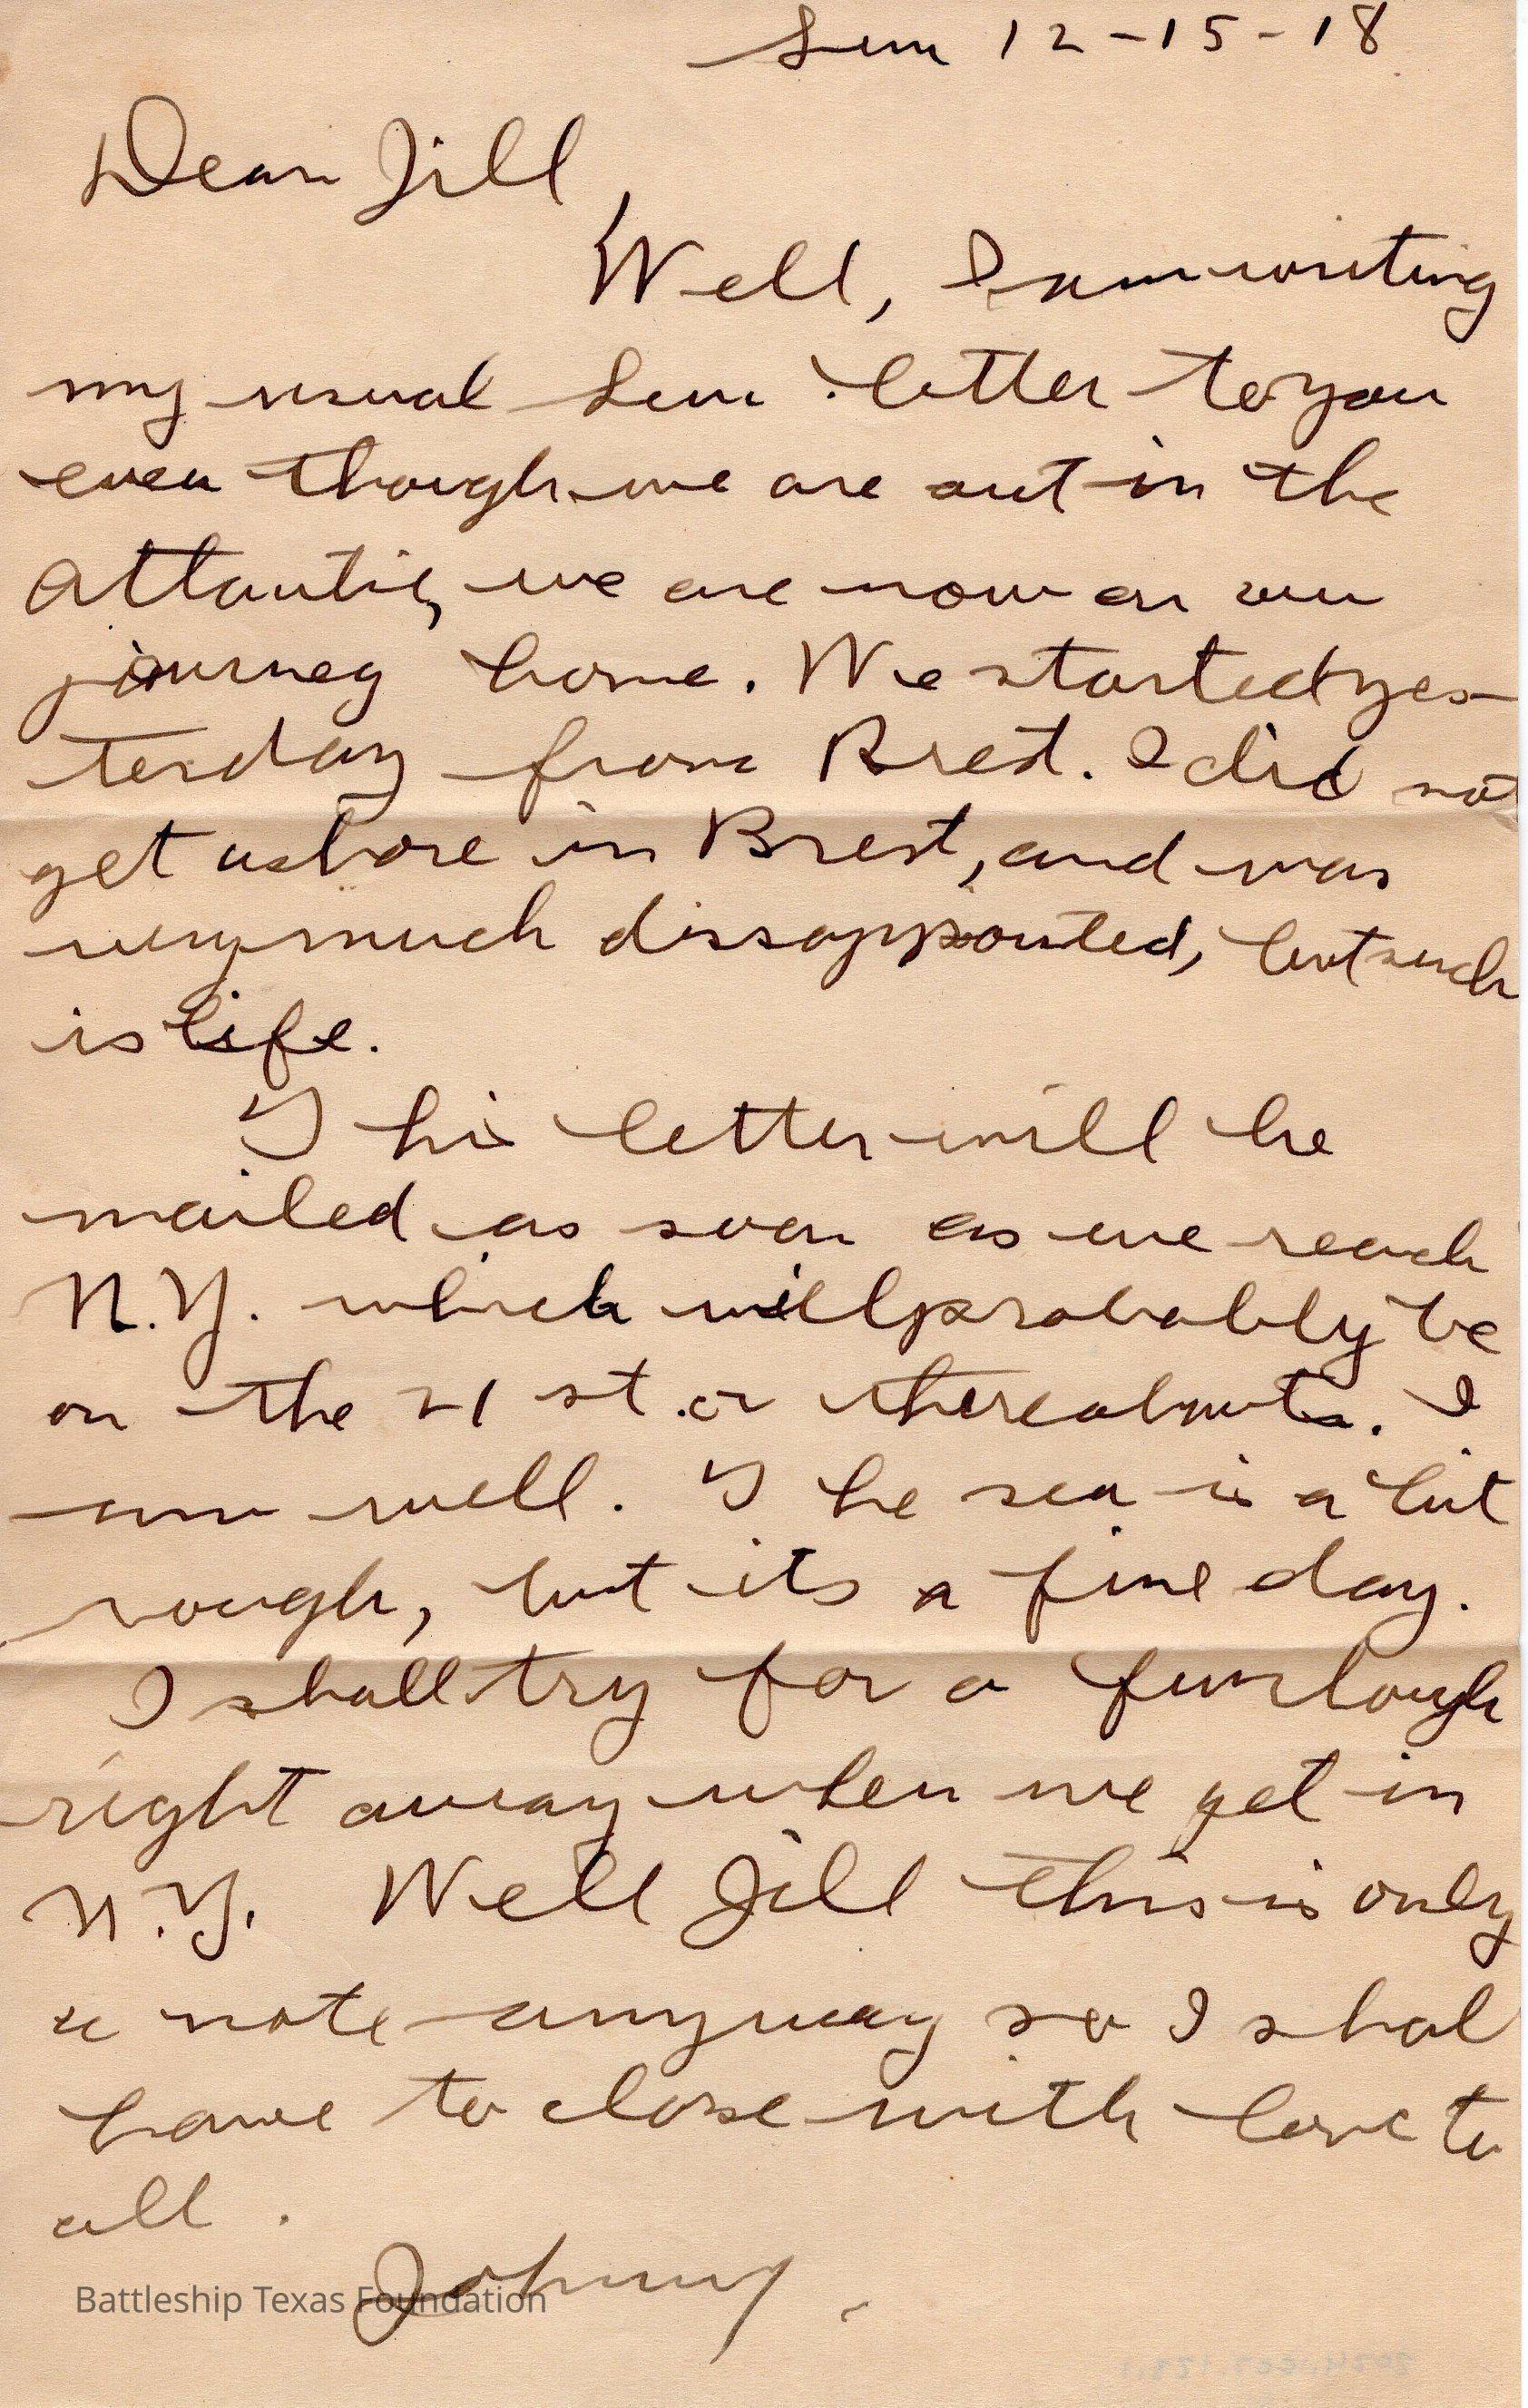 Sun 12-15-18
Dear Jill,
Well, I am writing
my usual Sun. letter to you
even though we are out in the
Atlantic, we are now on our
journey home. We started yes-
terday from Brest. I did not
get ashore in Brest, and was
very much dissappointed, but such
is life.
This letter will be
mailed as soon as we reach
N.Y. which will probably be
on the 21 st. or thereabouts. I
am well. The sea is a bit
rough, but its a fine day.
I shall try for a furlough
right away when we get in
N.Y. Well Jill this is only
a note anyway so I shal
have to close with love to
all.
Johnny.
Battleship Texas Foundation